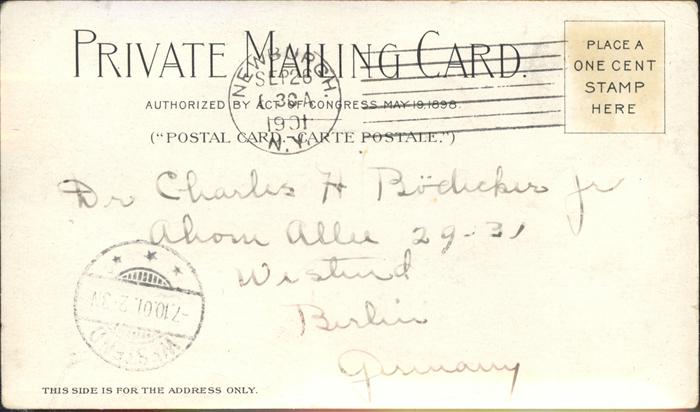 PRIVATE MAILING CARD.
PLACE A
ONE CENT
STAMP
HERE
NEWBURGH.
SEP 26
1901
N.Y.
AUTHORIZED BY ACT OF CONGRESS MAY 19, 1898.
("POSTAL CARD-CARTE POSTALE.")
Dr Charles H Bödicker Jr
Ahorn Allee 29-31
Westend
Berlin
Germany
-7.10.01. 2-3N
WESTEND
THIS SIDE IS FOR THE ADDRESS ONLY.